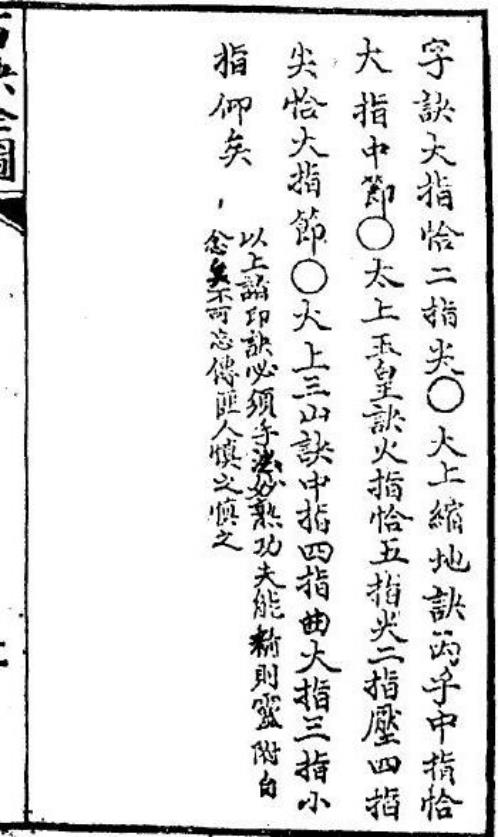 字訣大指恰二指尖〇大上縮地訣両手中指恰
大指中節〇太上玉皇訣大指恰五指尖二指壓四指
尖恰大指節〇大上三山訣中指四指曲大指三指小
指仰矣
以上諸印訣必須手法妙熟功夫能 則靈附自
念矣不可忘傳匪人慎之慎之
訣全圖